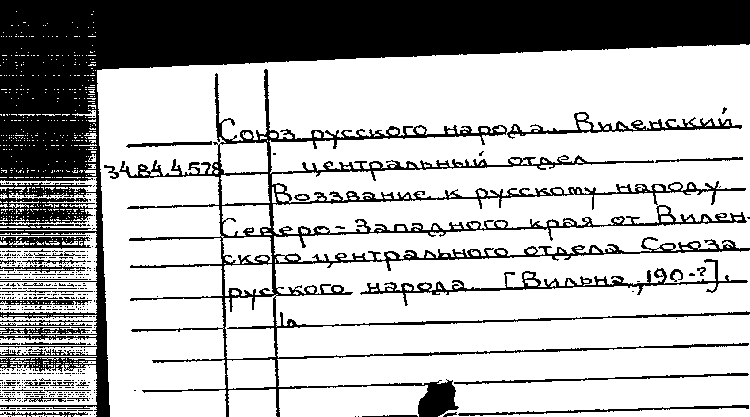 Союз русского народа. Виленский
34.84.4.578 центральный отдел
Воззвание к русскому народу
Северо-Западного края от Вилен-
ского центрального отдела Союза
русского народа. [Вильна, 190-?].
1л.